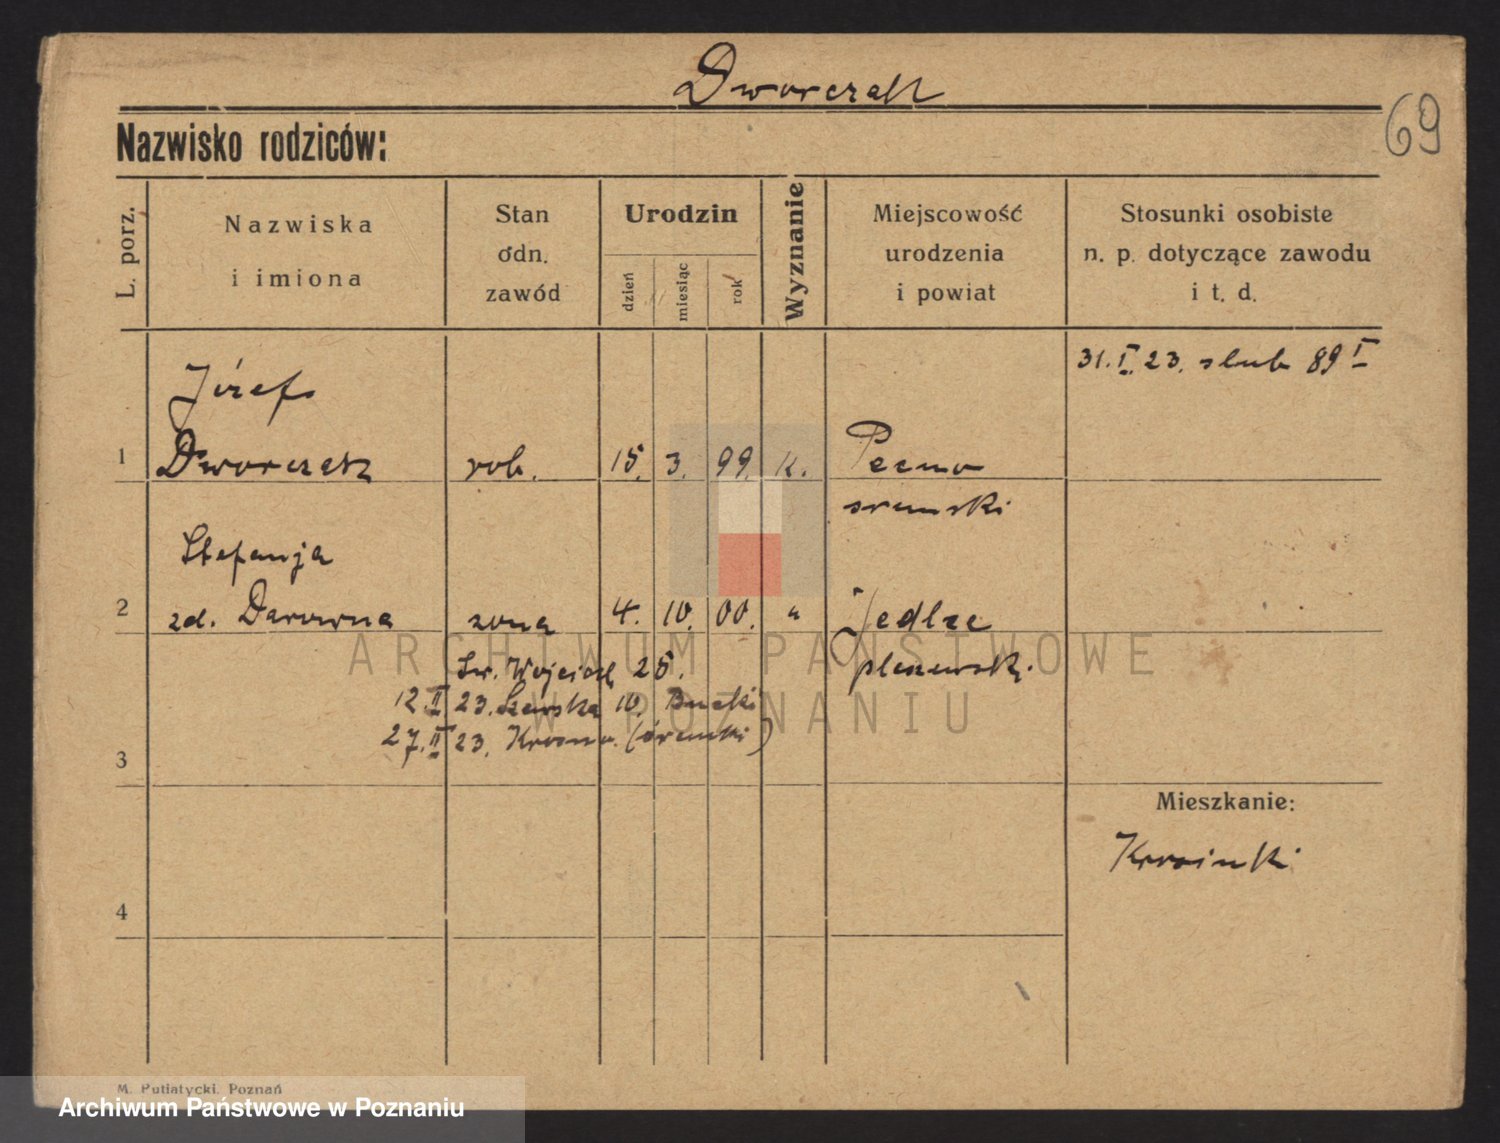 Dworczak
69
Nazwisko rodziców:
L. porz.
Nazwiska
i imiona
Stan
odn.
zawód
Urodzin
dzień
miesiąc
rok
Wyznanie
Miejscowość
urodzenia
i powiat
Stosunki osobiste
n. p. dotyczące zawodu
i t. d.
31. I. 23. slub 89 I
Józef
1 Dworczak rob. 15. 3. 99. k.
sremski
Stefanja
2 zd. zona 4. 10. 00. "
Sw. Wojciech 25.
12. II 23. 10.
27. II 23. Krosno (sremski)
3
pleszewski
Mieszkanie:
4
M. Putiatycki, Poznań
ARCHIWUM PAŃSTWOWE
W POZNANIU
Archiwum Państwowe w Poznaniu